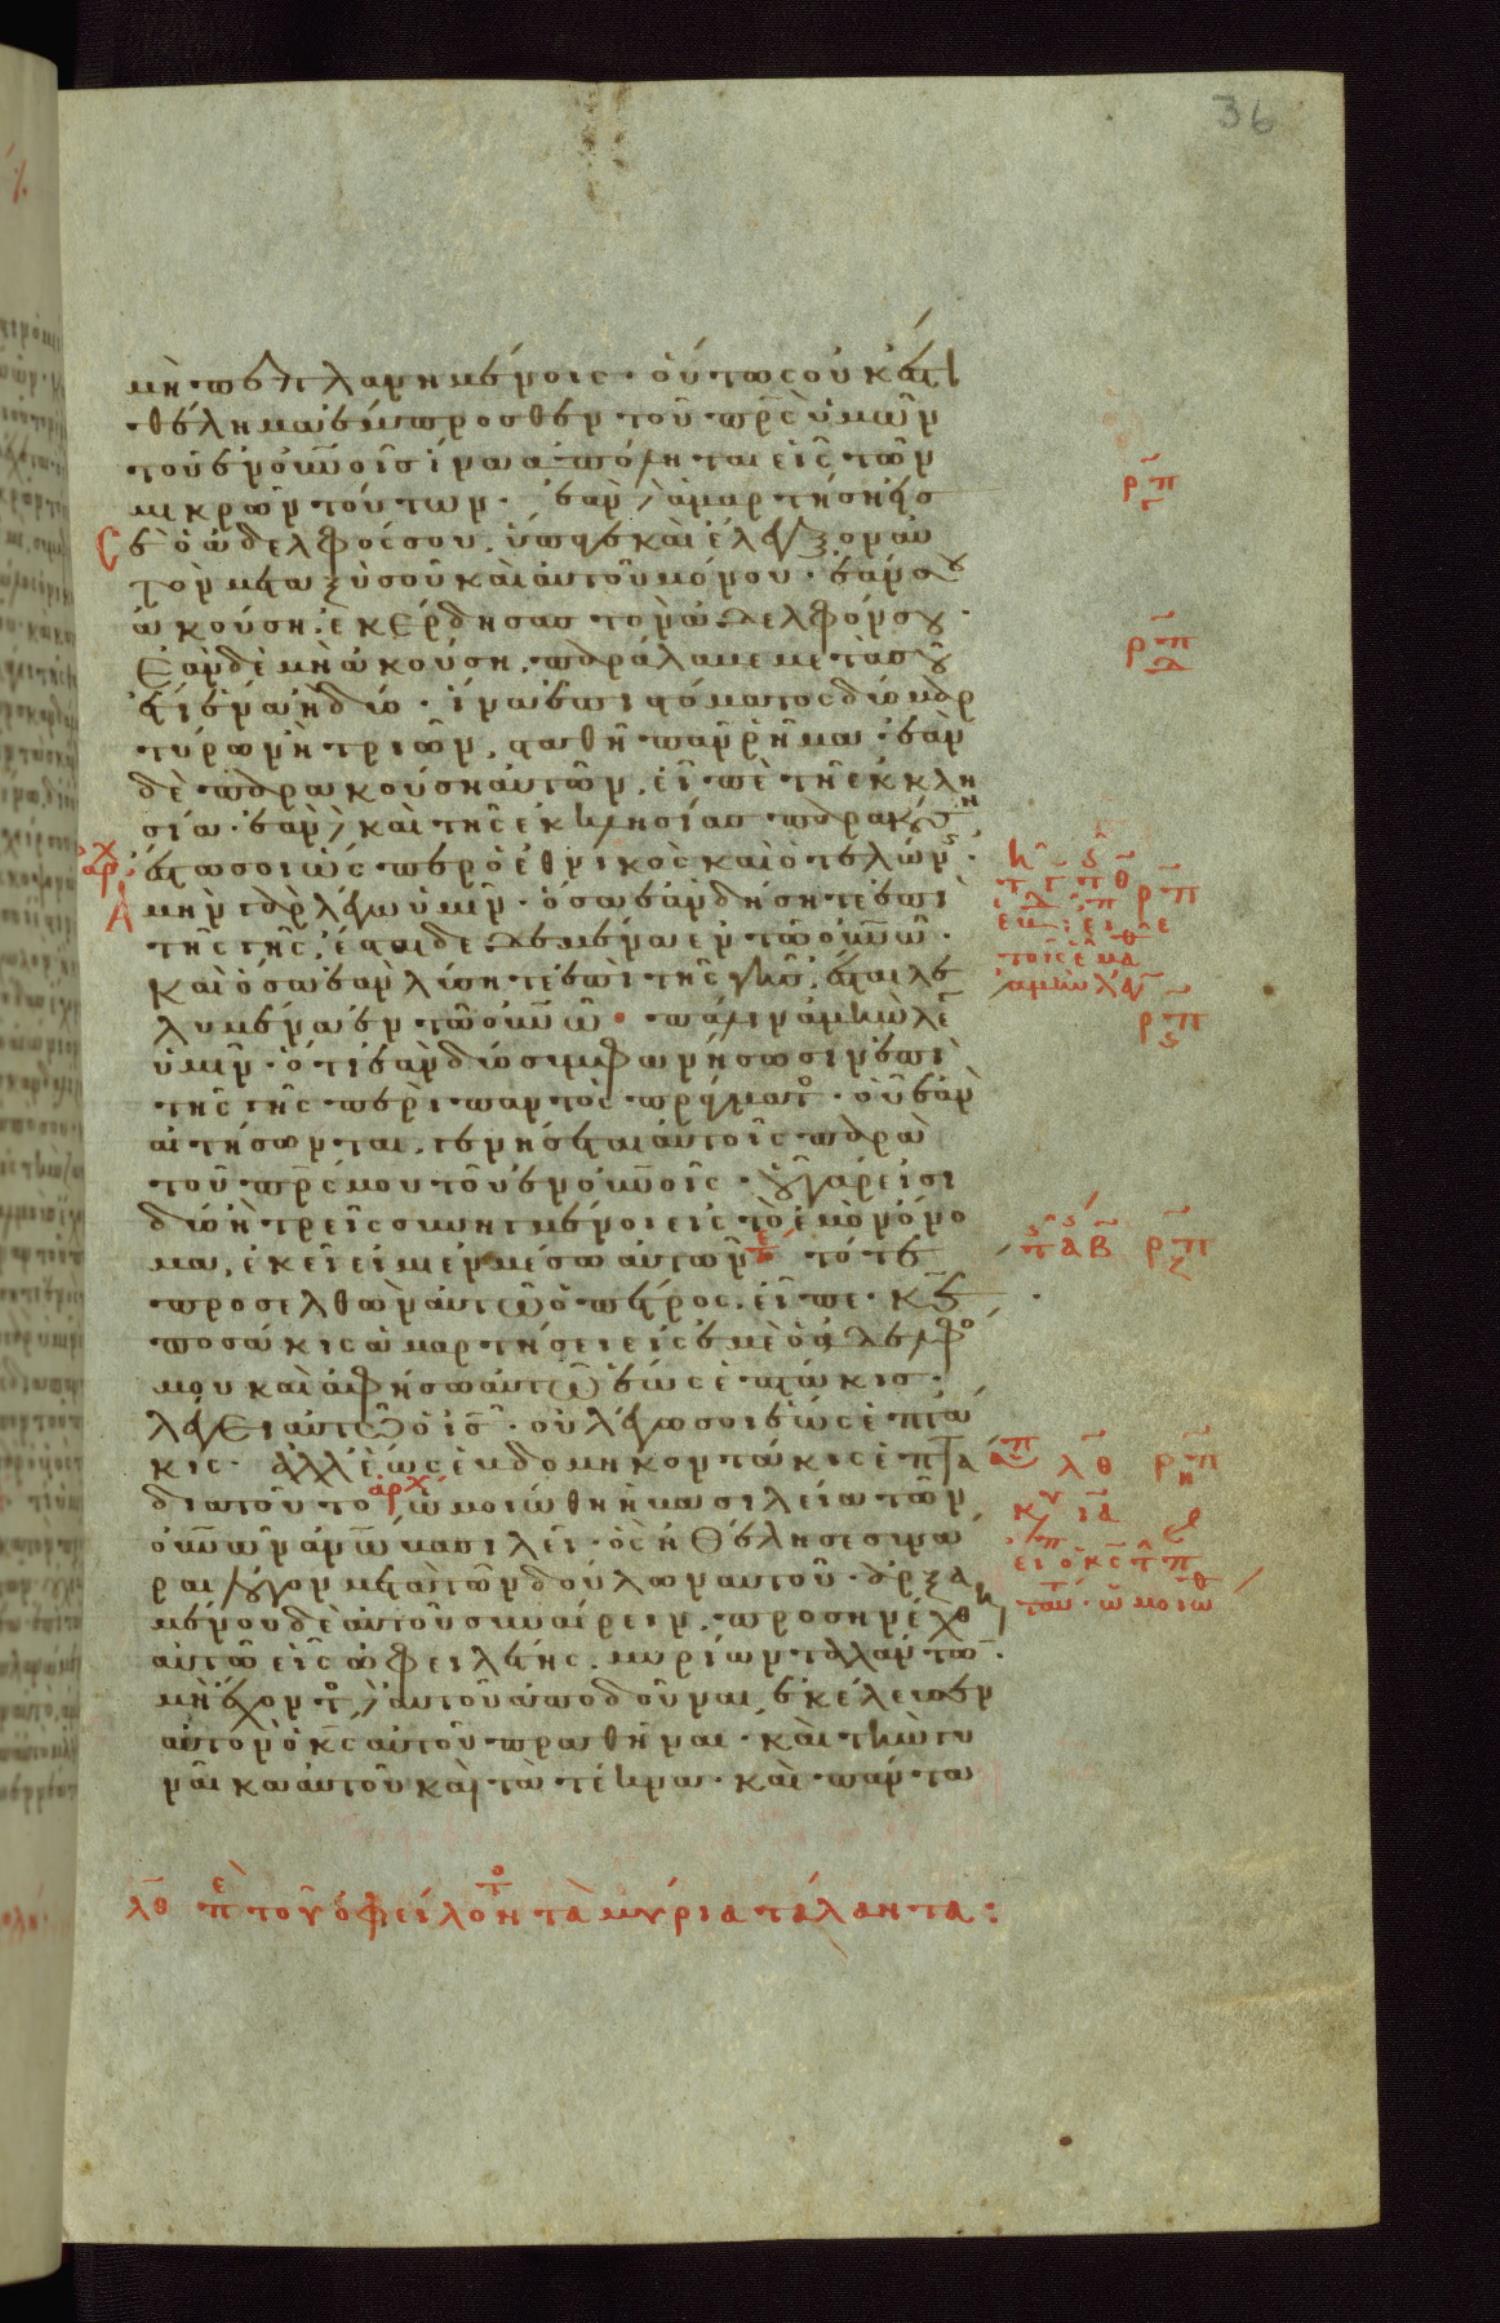 36
μὴ πεπλανημένοις· οὕτως οὐκ ἔστι
θέλημα ἔμπροσθεν τοῦ πρ̅ς ὑμῶν
τοῦ ἐν ὀυ̅νοῖς ἵνα ἀπόληται εἷς τῶν
μικρῶν τούτων· ἐὰν δὲ ἁμαρτήση εἰς
σὲ ὁ ἀδελφός σου, ὕπαγε καὶ ἔλεγξον αὐ
τὸν μεταξὺ σοῦ καὶ αὐτοῦ μόνου· ἐάν σου
ἀκούση, ἐκέρδησας τὸν ἀδελφόν σου·
Ἐὰν δὲ μὴ ἀκούση, παράλαβε μετὰ σοῦ
ἔτι ἕνα ἢ δύο· ἵνα ἐπὶ στόματος δύο μαρ
τύρων ἢ τριῶν, σταθῆ πᾶν ῥῆμα· ἐὰν
δὲ παρακούση αὐτῶν, εἰπὲ τῆ ἐκκλη
σία· ἐὰν δὲ καὶ τῆς ἐκκλησίας παρακούση
ἔστω σοι ὡς περ ὁ ἐθνικὸς καὶ ὁ τελώνης·
ἀρχ
Ἀμὴν γὰρ λέγω ὑμῖν· ὅσα ἐὰν δήσητε ἐπὶ
τῆς γῆς, ἔσται δεδεμένα ἐν τῶ ὀυ̅νῶ·
καὶ ὅσα ἐὰν λύσητε ἐπὶ τῆς γῆς, ἔσται λε
λυμένα ἐν τῶ ὀυ̅νῶ· πάλιν ἀμὴν λέγω
ὑμῖν· ὅτι ἐὰν δύο συμφωνήσωσιν ἐπὶ
τῆς γῆς περὶ παντὸς πράγματος· οὗ ἐὰν
αἰτήσωνται, γενήσεται αὐτοῖς παρὰ
τοῦ πρ̅ς μου τοῦ ἐν ὀυ̅νοῖς· οὗ γάρ εἰσι
δύο ἢ τρεῖς συνηγμένοι εἰς τὸ ἐμὸν ὄνο
μα, ἐκεῖ εἰμὶ ἐν μέσω αὐτῶν· τότε
προσελθὼν αὐτῶ ὁ πέτρος, εἶπε· κ̅ε
ποσάκις ἁμαρτήσει εἰς ἐμὲ ὁ ἀδελφός
μου καὶ ἀφήσω αὐτῶ ἕως ἑπτάκις·
λέγει αὐτῶ ὁ ι̅ς· οὐ λέγω σοι ἕως ἑπτά
κις· ἀλλ' ἕως ἑβδομηκοντάκις ἑπτά
διατοῦτο ἀρχ ὡμοιώθη ἡ βασιλεία τῶν
ὀυ̅νῶν ἀν̅ω βασιλεῖ· ὃς ἠθέλησε συνᾶ
ραι λόγον μετὰ τῶν δούλων αὐτοῦ· ἀρξα
μένου δὲ αὐτοῦ συναίρειν, προσηνέχθη
αὐτῶ εἷς ὀφειλέτης, μυρίων ταλάντων·
μὴ ἔχοντος δὲ αὐτοῦ ἀποδοῦναι, ἐκέλευσεν
αὐτὸν ὁ κ̅ς αὐτοῦ πραθῆναι· καὶ τὴν γυ
ναῖκα αὐτοῦ καὶ τὰ τέκνα· καὶ πάντα
ρπγ
ρπδ
ρπε
ρπς
αβ ρπζ
λθ ρπη
κυ ια
λθ πε τοῦ ὀφείλοντος τὰ μύρια τάλαντα: